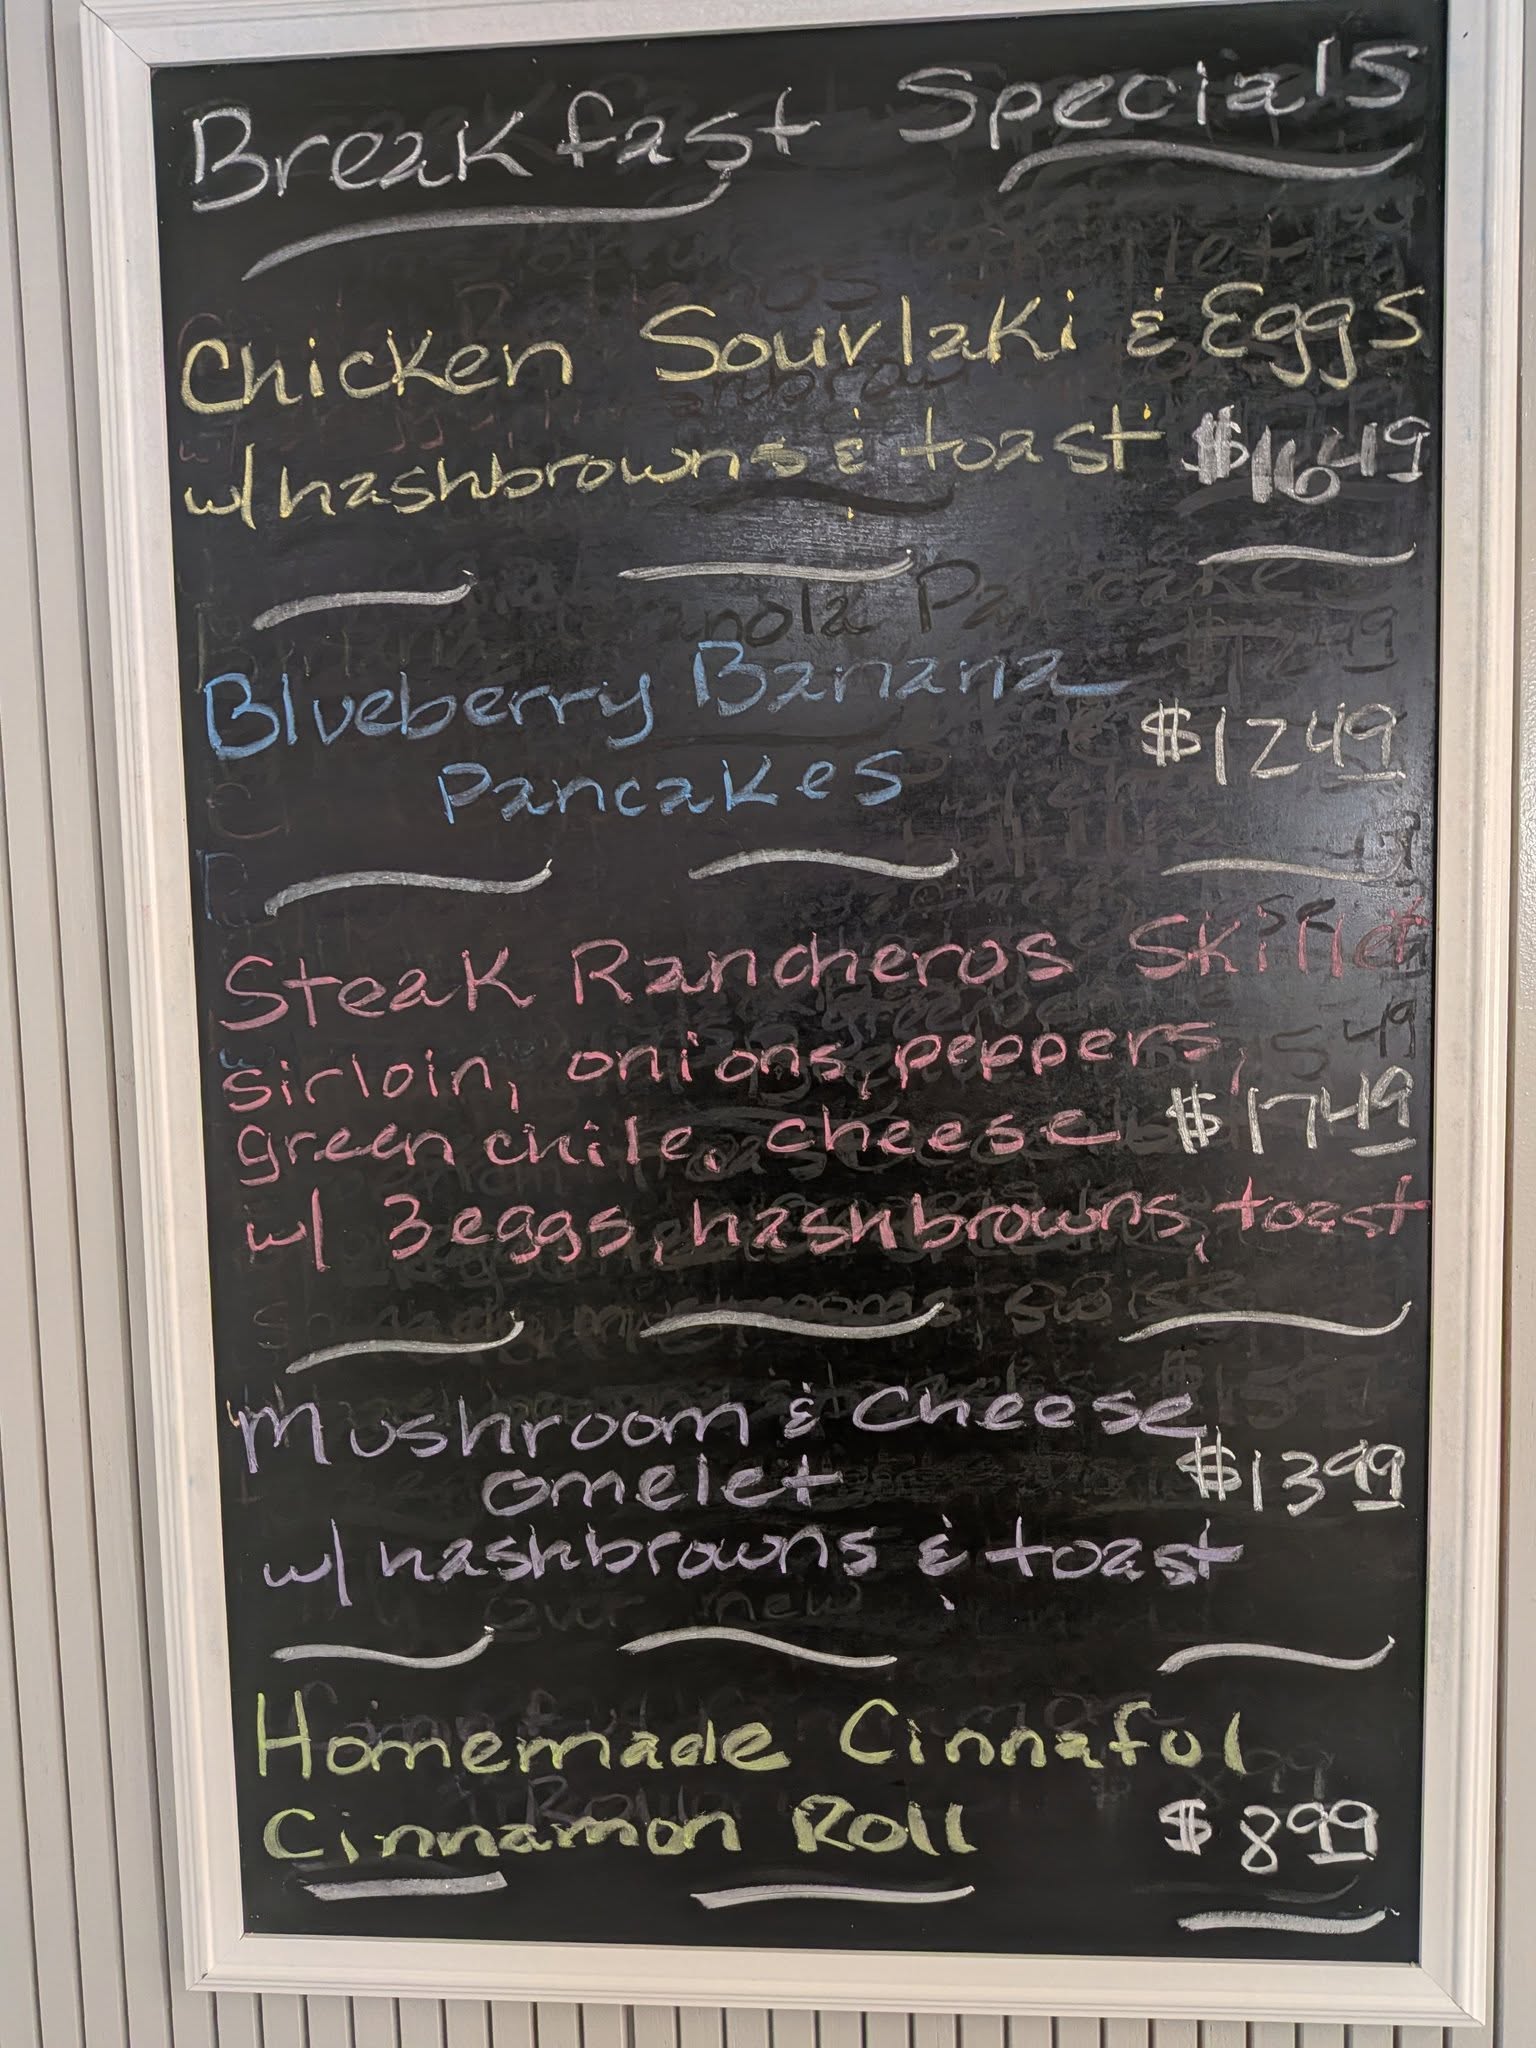 Breakfast Specials
Chicken Sourlaki & Eggs
w/hashbrowns & toast $16.49
Blueberry Banana
Pancakes $12.49
Steak Rancheros Skillet
sirloin, onions, peppers,
green chile, cheese $17.49
w/ 3 eggs, hashbrowns, toast
Mushroom & Cheese
omelet $13.99
w/ hashbrowns & toast
Homemade Cinnaful
Cinnamon Roll $8.99